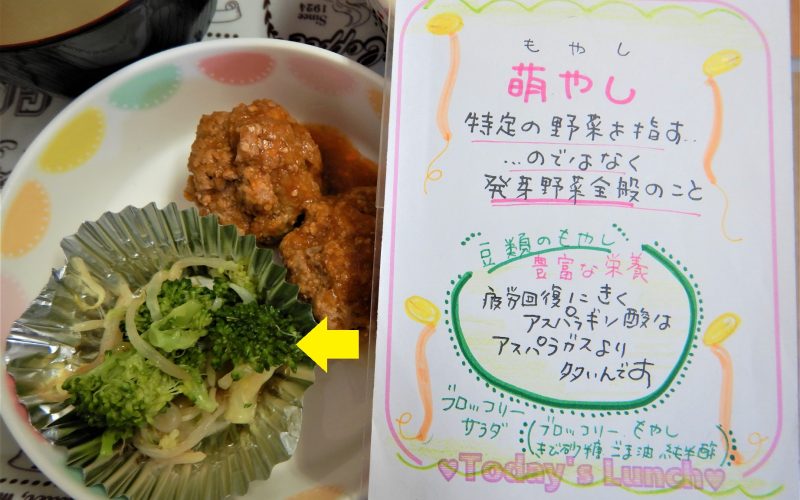 Since
1924
Coffee
もやし
萌やし
特定の野菜を指す…
…のではなく
発芽野菜全般のこと
豆類のもやし
豊富な栄養
疲労回復にきく
アスパラギン酸は
アスパラガスより
多いんです
ブロッコリー
サラダ
(ブロッコリー、もやし
きび砂糖、ごま油、純米酢)
♥Today's Lunch♥